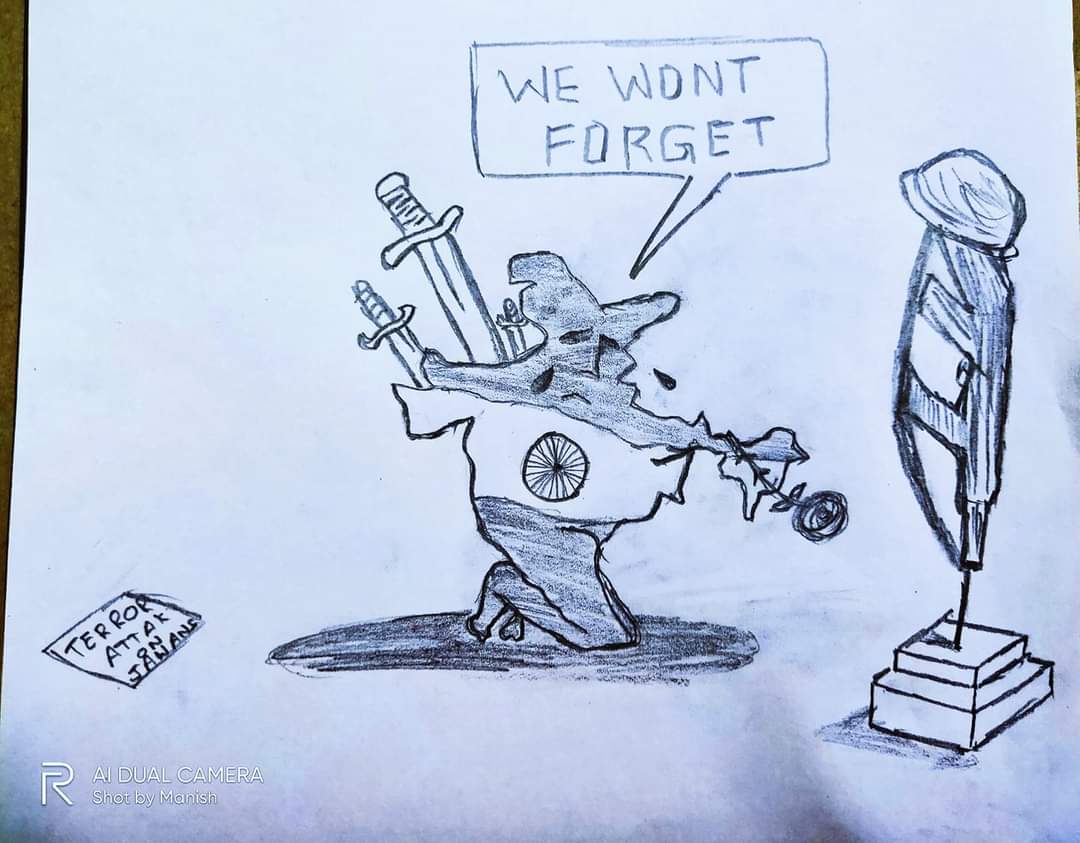 WE WONT
FORGET
TERROR
ATTAK
ON
JAWANS
R
AI DUAL CAMERA
Shot by Manish